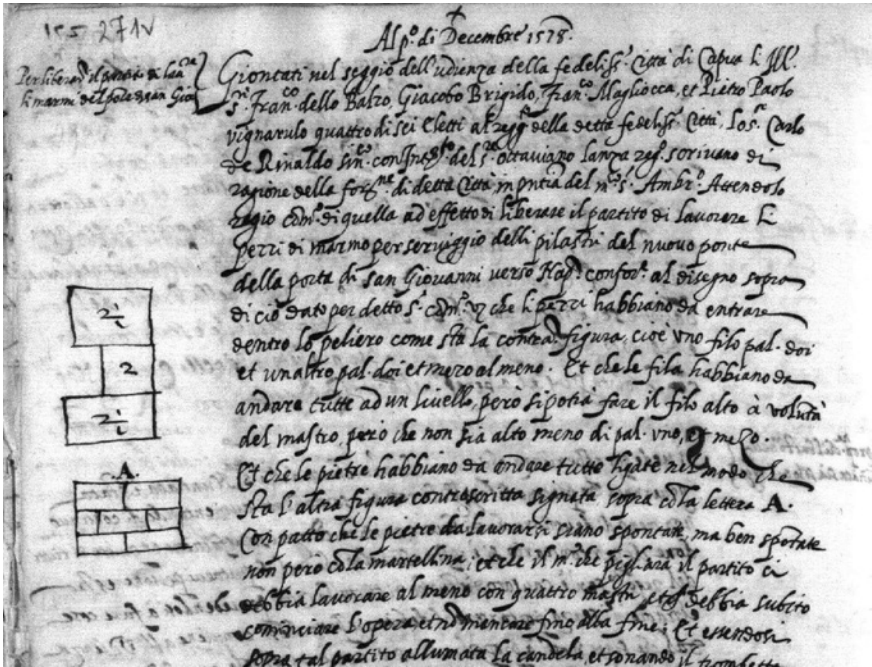 155 271v
A p.º di Decembre 1578.
Per liberar il partito di lan.ra
li marmi del pote di san Gio:
Giontati nel seggio dell'udienza della fedeliss.ª Città di Capua li Ill.
s.ri Fran.co dello Balzo, Giacobo Brigido, Fran.co Magliocca, et Pietro Paolo
vignarulo quattro di sei Eletti al regg.to della detta fedeliss.ª Città, lo s.r Carlo
de Rinaldo sin.co con del s.r ottaviano lanza reg.º scrivano di
ragione della di detta Città in pntia del m.co s. Ambr.º Attendolo
regio di quella ad effetto di liberare il partito di lavorare li
pezzi di marmo per serviggio delli pilastri del nuovo ponte
della porta di san Giovanni verso Nap. confor.e al disegno sopra
di ciò dato per detto s.r che li pezzi habbiano da entrare
dentro lo peliero come sta la contra figura, cioè uno filo pal. doi
et un altro pal. doi et mezo al meno. Et che le fila habbiano da
andare tutte ad un livello, però si potrà fare il filo alto à voluntà
del mastro, però che non sia alto meno di pal. uno, et mezo.
Et che le pietre habbiano da andare tutte ligate nel modo che
sta l'altra figura contrascritta signata sopra cò la lettera A.
Con patto che le pietre da lavorarsi siano spontate, ma ben spontate
non però cò la martellina; et che il m.ro che pigliarà il partito ci
debbia lavorare al meno con quattro mastri et debbia subito
cominciare l'opera et nò mancare fino alla fine; Et essendosi
sopra tal partito allumata la candela, et sonando il trombetta
2½
2
2½
.A.